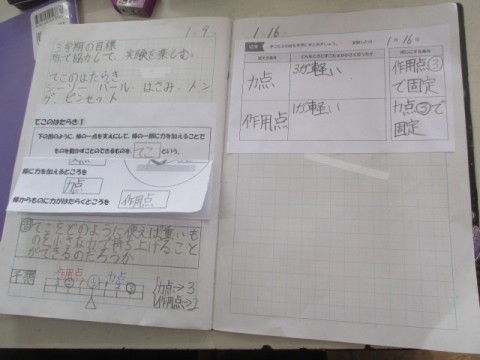 1.9
3学期の目標
班で協力して、実験を楽しむ。
てこのはたらき
シーソー、バール、はさみ、トン
グ、ピンセット
てこのはたらき①
下の図のように、棒の一点を支えにして、棒の一部に力を加えることで
ものを動かすことのできるものを てこ という。
棒に力を加えるところを
力点
棒からものに力がはたらくところを
作用点
てこをどのように使えば重いも
のを小さな力で持ち上げること
ができるのだろうか
予想
作用点 力点
力点→3
作用点→2
1.16
1月16日
力点
3が軽い
作用点③
で固定
作用点
1が軽い
力点③で
固定